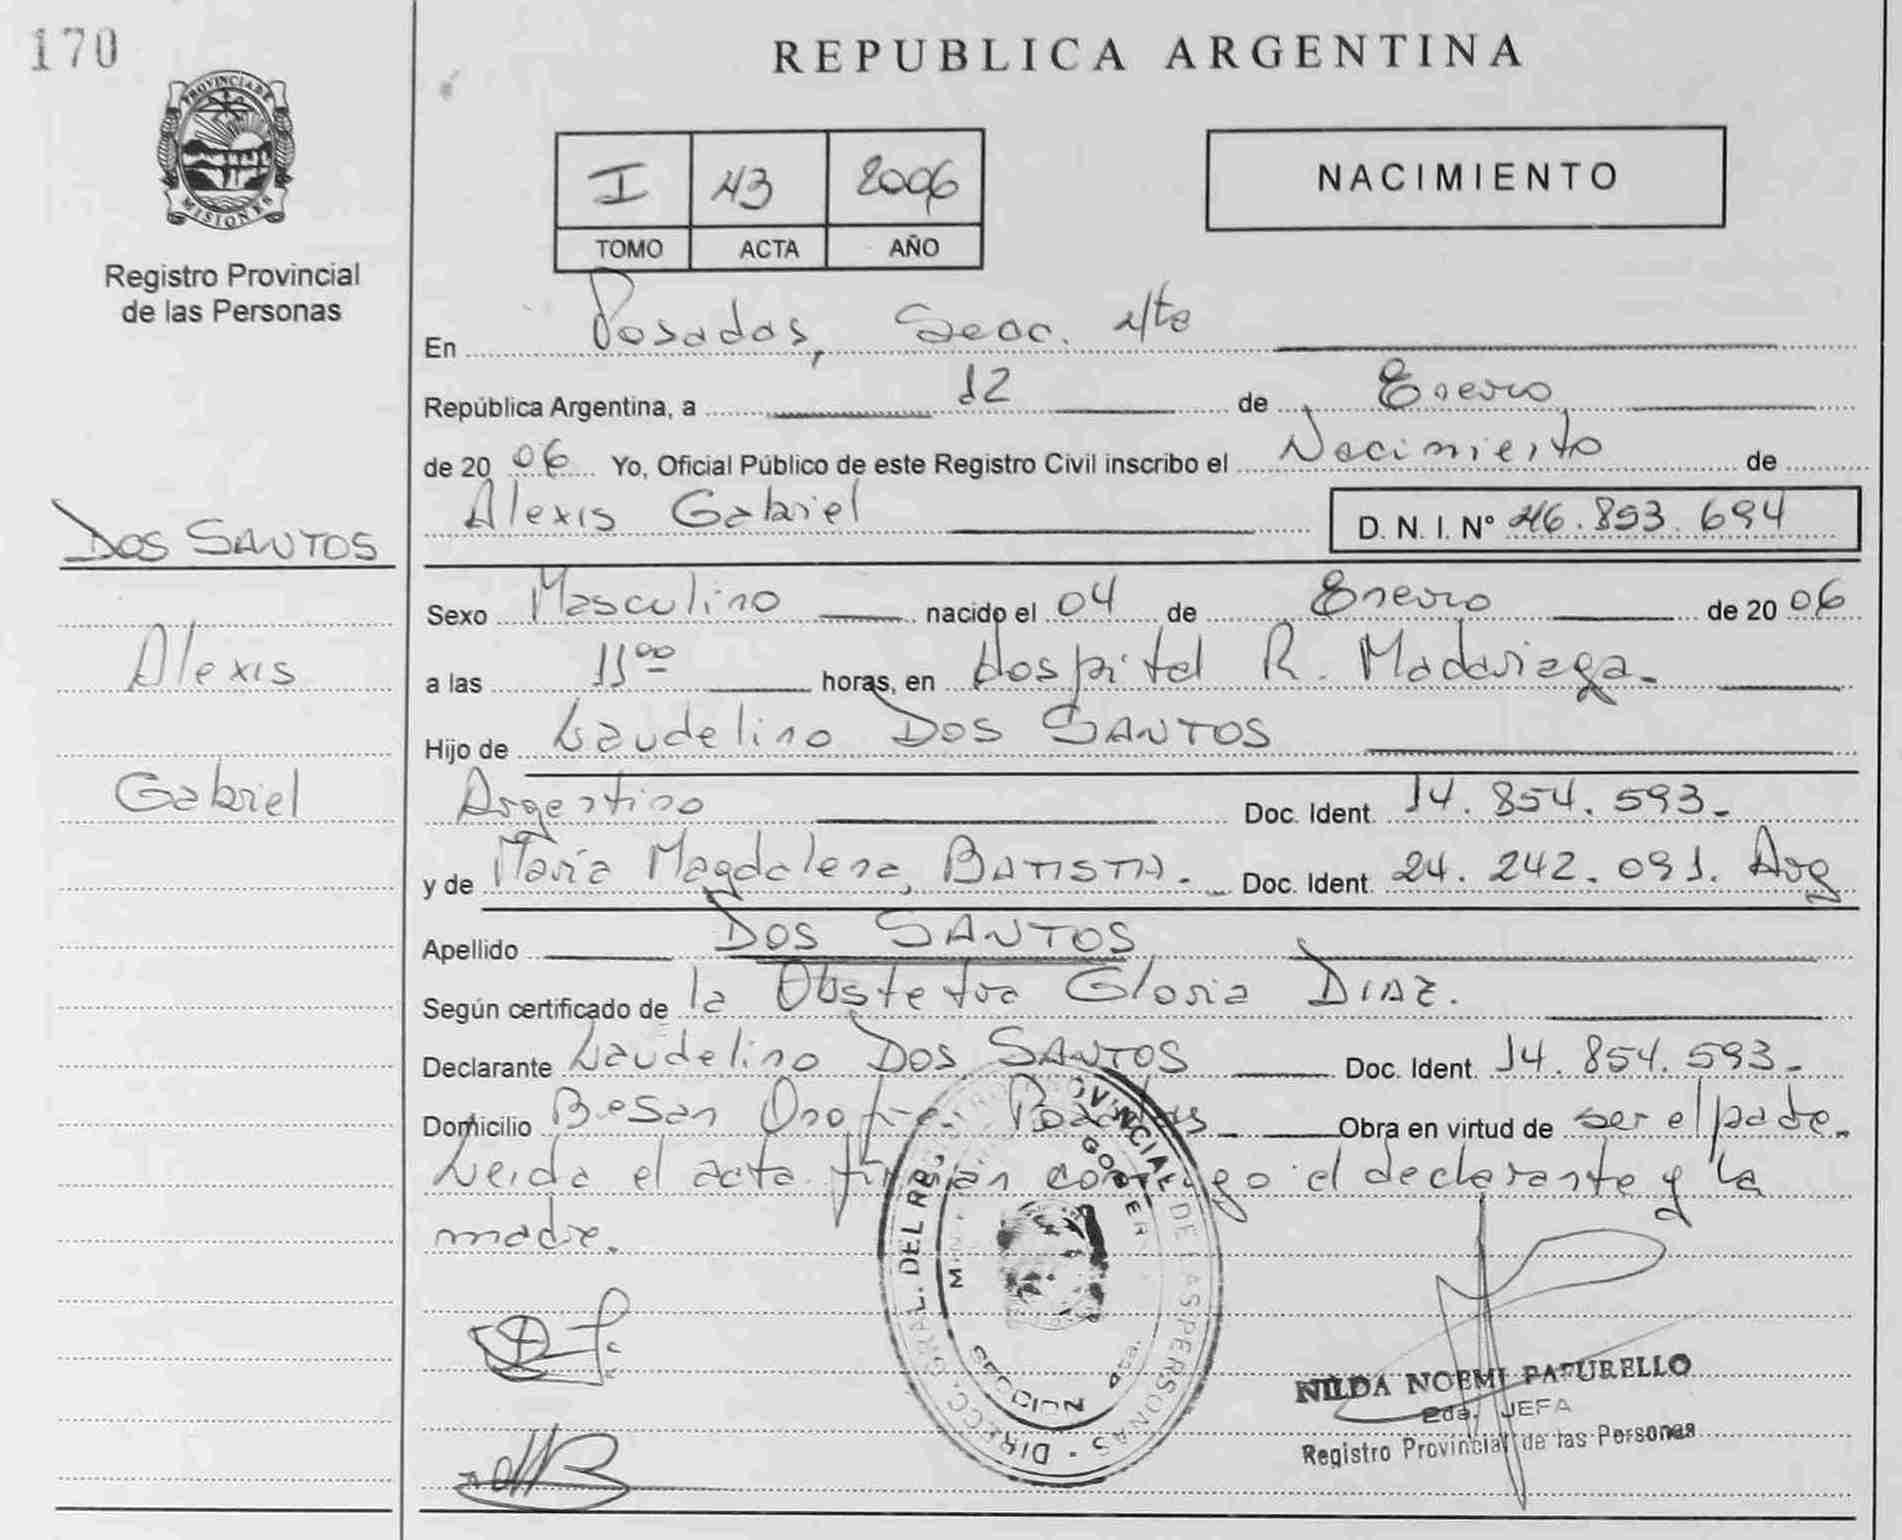 170
REPUBLICA ARGENTINA
PROVINCIA DE
MISIONES
Registro Provincial
de las Personas
I 43 2006
TOMO ACTA AÑO
NACIMIENTO
En Posadas, Secc. 4ta
República Argentina, a 12 de Enero
de 20 06 Yo, Oficial Público de este Registro Civil inscribo el Nacimiento de
Alexis Gabriel D. N. I. N° 46.893.694
DOS SANTOS
Alexis
Gabriel
Sexo Masculino nacido el 04 de Enero de 20 06
a las 11⁰⁰ horas, en Hospital R. Madariaga.
Hijo de Laudelino DOS SANTOS
Argentino Doc. Ident. 14.854.593.
y de María Magdalena, BATISTA. Doc. Ident. 24.242.091. Arg
Apellido DOS SANTOS
Según certificado de la Obstetra Gloria DIAZ.
Declarante Laudelino DOS SANTOS Doc. Ident. 14.854.593.
Domicilio Posadas Obra en virtud de ser el padre.
Leida el acta firman conmigo el declarante y la
madre.
DIRECC. GRAL. DEL REG. PROVINCIAL DE LAS PERSONAS
NILDA NOEMI PAFURELLO
2da. JEFA
Registro Provincial de las Personas